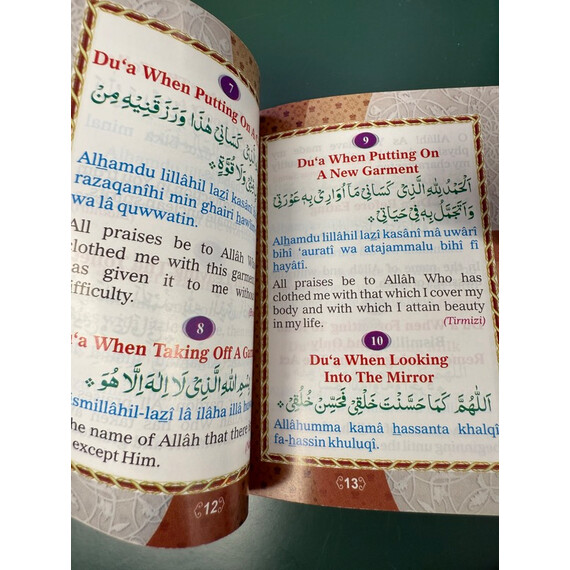 7
Du‘a When Putting On A
كَسَانِيْ هٰذَا وَرَزَقَنِيْهِ مِنْ
وَلَا قُوَّةٍ
Alhamdu lillâhil lazî kasânî
razaqanîhi min ghairi hawlim
wa lâ quwwatin.
All praises be to Allâh Who
clothed me with this garment
has given it to me without
difficulty.
8
Du‘a When Taking Off A
بِسْمِ اللّٰهِ الَّذِيْ لَا اِلٰهَ اِلَّا هُوَ
Bismillâhil-lazî lâ ilâha illâ
the name of Allâh that there
except Him.
12
9
Du‘a When Putting On
A New Garment
اَلْحَمْدُ لِلّٰهِ الَّذِيْ كَسَانِيْ مَا اُوَارِيْ بِهٖ عَوْرَتِيْ
وَاَتَجَمَّلُ بِهٖ فِيْ حَيَاتِيْ
Alhamdu lillâhil lazî kasânî mâ uwâri
bihî ‘auratî wa atajammalu bihî fî
hayâtî.
All praises be to Allâh Who has
clothed me with that which I cover my
body and with which I attain beauty
in my life. (Tirmizi)
10
Du‘a When Looking
Into The Mirror
اَللّٰهُمَّ كَمَا حَسَّنْتَ خَلْقِيْ فَحَسِّنْ خُلُقِيْ
Allâhumma kamâ hassanta khalqî
fa-hassin khuluqî.
13